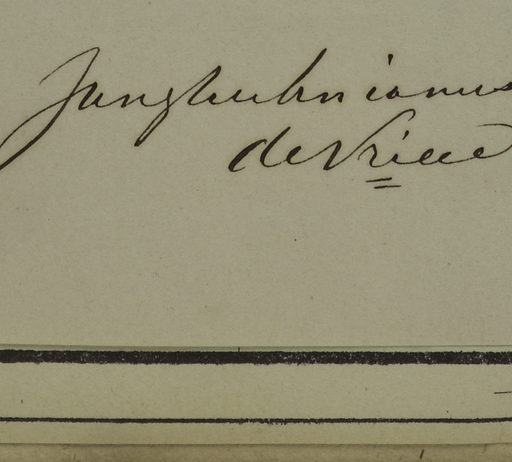 Junghuhnianus
de Vriese